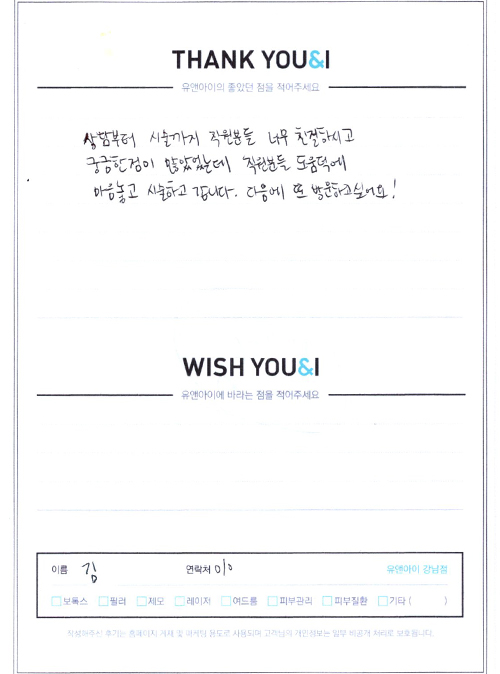 THANK YOU&I
유앤아이의 좋았던 점을 적어주세요
상담부터 시술까지 직원분들 너무 친절하시고
궁금한점이 많았었는데 직원분들 도움덕에
마음놓고 시술하고 갑니다. 다음에 또 방문하고싶어요!
WISH YOU&I
유앤아이에 바라는 점을 적어주세요
이름 김 연락처 010 유앤아이 강남점
보톡스 필러 제모 레이저 여드름 피부관리 피부질환 기타 ( )
작성해주신 후기는 홈페이지 게재 및 마케팅 용도로 사용되며 고객님의 개인정보는 일부 비공개 처리로 보호됩니다.